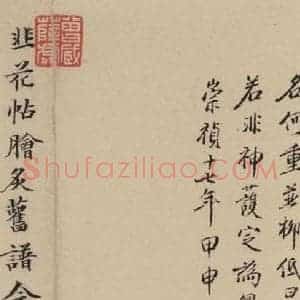 名何重並柳低
若非神護定為
崇禎十七年甲申
韭花帖膾炙舊譜今
Shufaziliao.com